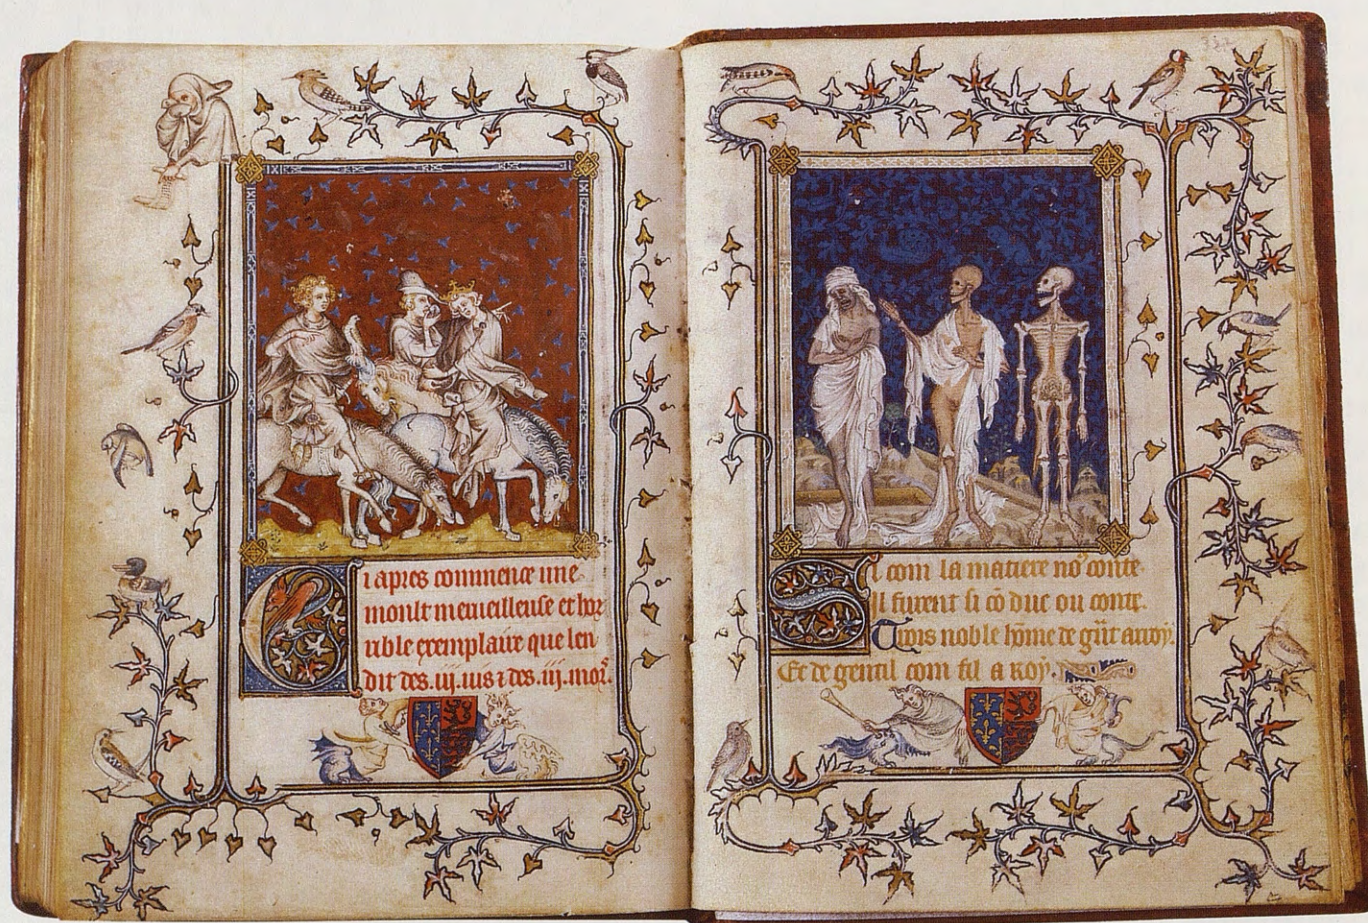 Ci apres commence une
moult merueilleuse et hor
rible exemplaire que len
dit des .iij. uis ⁊ des .iij. morˢ.
Si com la matiere noˢ conte
Il furent si cō duc ou conte.
Trois noble hōme de grāt arroy.
Et de gentil com fil a roy.